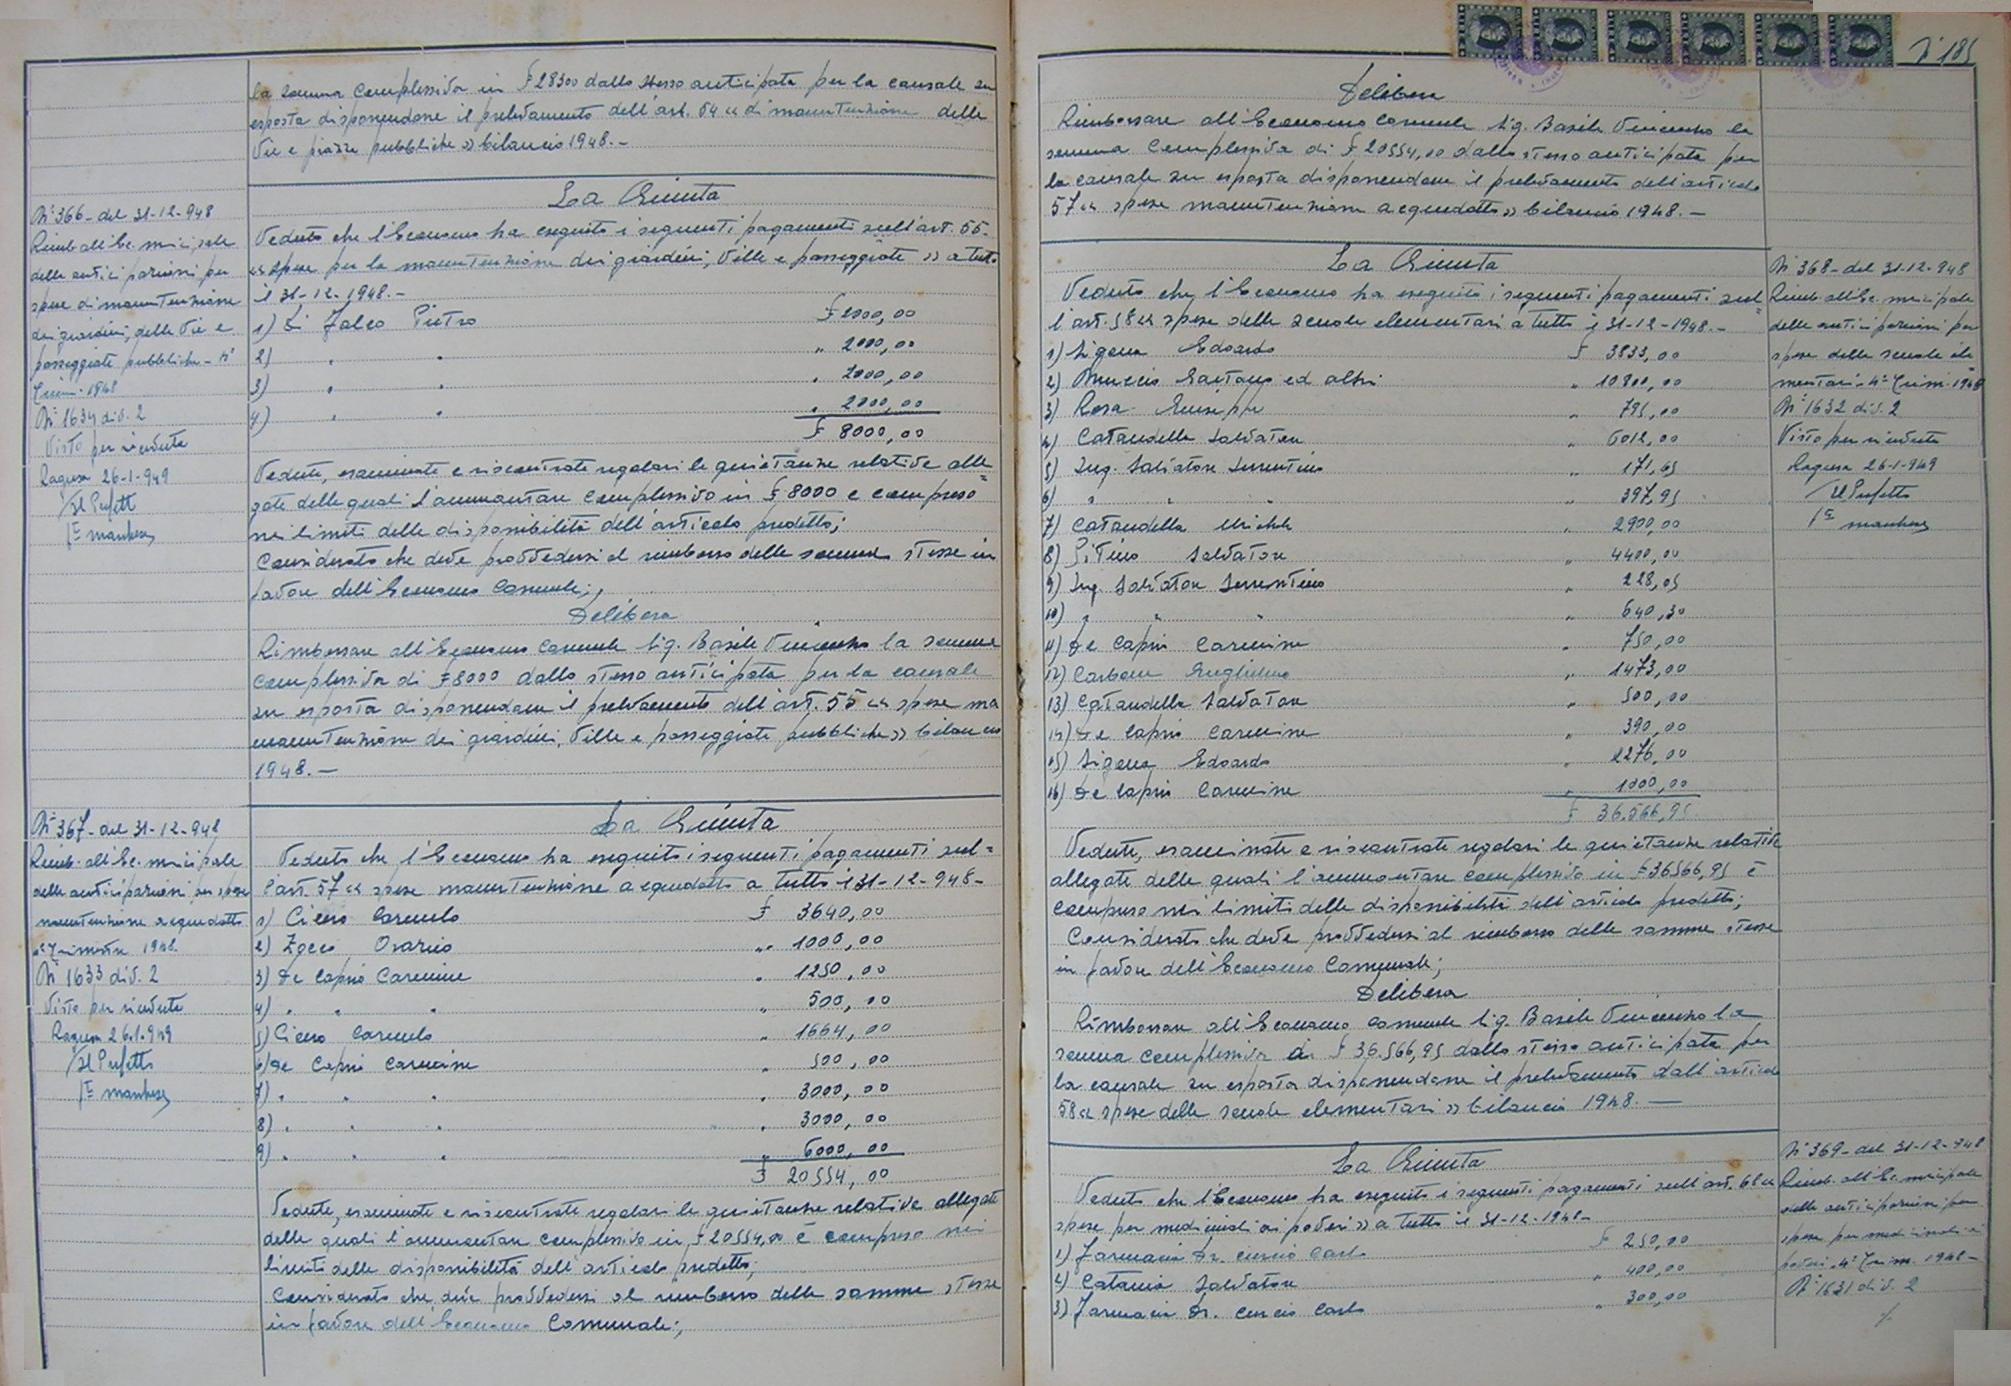 la somma complessiva in £ 28300 dallo stesso anticipata per la causale su
esposta disponendone il prelevamento dell'art. 54 « di manutenzione delle
Vie e piazze pubbliche » bilancio 1948.-
N° 366 - del 31-12-948
Rimb. all'Ec. municipale
delle anticipazioni per
spese di manutenzione
dei giardini, delle Vie e
passeggiate pubbliche - 4°
Trim. 1948
N° 1634 div. 2
Visto per ricevuta
Ragusa 26-1-949
Il Prefetto
La Giunta
Veduto che l'Economo ha eseguito i seguenti pagamenti sull'art. 55-
« spese per la manutenzione dei giardini, Ville e passeggiate » a tutto
il 31-12-1948.-
1) Di Falco Pietro £ 2000,00
2) " " " 2000,00
3) " " " 2000,00
4) " " " 2000,00
£ 8000,00
Vedute, esaminate e riscontrate regolari le quietanze relative alle=
gate delle quali l'ammontare complessivo in £ 8000 è compreso
nei limiti delle disponibilità dell'articolo predetto;
Considerato che deve provvedersi al rimborso delle somme stesse in
favore dell'Economo Comunale;
Delibera
Rimborsare all'Economo Comunale Sig. Basile Vincenzo la somma
complessiva di £ 8000 dallo stesso anticipata per la causale
su esposta disponendone il prelevamento dell'art. 55 « spese ma
manutenzione dei giardini, Ville e passeggiate pubbliche » bilancio
1948.-
N° 367 - del 31-12-948
Rimb. all'Ec. municipale
delle anticipazioni per spese
manutenzione acquedotto
4° Trimestre 1948
N° 1633 div. 2
Visto per ricevuta
Ragusa 26-1-949
Il Prefetto
La Giunta
Veduto che l'Economo ha eseguito i seguenti pagamenti sul=
l'art. 57 « spese manutenzione acquedotto a tutto il 31-12-948-
1) Cicero Carmelo £ 3640,00
2) Zocco Orazio " 1000,00
3) De Caprio Carmine " 1250,00
4) " " " " 500,00
5) Cicero Carmelo " 1664,00
6) De Caprio Carmine " 500,00
7) " " " " 3000,00
8) " " " 3000,00
9) " " " " 6000,00
£ 20554,00
Vedute, esaminate e riscontrate regolari le quietanze relative allegate
delle quali l'ammontare complessivo in £ 20554,00 è compreso nei
limiti delle disponibilità dell'articolo predetto;
Considerato che deve provvedersi al rimborso delle somme stesse
in favore dell'Economo Comunale;
N° 185
Delibera
Rimborsare all'Economo Comunale Sig. Basile Vincenzo la
somma complessiva di £ 20554,00 dallo stesso anticipata per
la causale su esposta disponendone il prelevamento dell'articolo
57 « spese manutenzione acquedotto » bilancio 1948.-
La Giunta
Veduto che l'Economo ha eseguito i seguenti pagamenti sul=
l'art. 58 « spese delle scuole elementari a tutto il 31-12-1948.-
1) Digena Edoardo £ 3833,00
2) Muccio Gaetano ed altri " 10800,00
3) Rosa Giuseppe " 795,00
4) Cataudella Salvatore " 6012,00
5) Ing. Salvatore Sorrentino " 171,65
6) " " " " 397,95
7) Cataudella Michele " 2900,00
8) Pitino Salvatore " 4400,00
9) Ing. Salvatore Sorrentino " 228,05
10) " " " " 640,30
11) De Caprio Carmine " 750,00
12) Carbone Guglielmo " 1473,00
13) Cataudella Salvatore " 500,00
14) De Caprio Carmine " 390,00
15) Digena Edoardo " 2276,00
16) De Caprio Carmine " 1000,00
£ 36.566,95
Vedute, esaminate e riscontrate regolari le quietanze relative
allegate delle quali l'ammontare complessivo in £ 36566,95 è
compreso nei limiti delle disponibilità dell'articolo predetto;
Considerato che deve provvedersi al rimborso delle somme stesse
in favore dell'Economo Comunale;
Delibera
Rimborsare all'Economo Comunale Sig. Basile Vincenzo la
somma complessiva di £ 36.566,95 dallo stesso anticipata per
la causale su esposta disponendone il prelevamento dall'articolo
58 « spese delle scuole elementari » bilancio 1948.-
N° 368 - del 31-12-948
Rimb. all'Ec. municipale
delle anticipazioni per
spese delle scuole ele
mentari - 4° Trim. 1948
N° 1632 div. 2
Visto per ricevuta
Ragusa 26-1-949
Il Prefetto
La Giunta
Veduto che l'Economo ha eseguito i seguenti pagamenti sull'art. 68 «
spese per medicinali ai poveri » a tutto il 31-12-1948-
1) Farmacia Dr. Curcio Carlo £ 250,00
2) Catania Salvatore " 400,00
3) Farmacia Dr. Curcio Carlo " 300,00
N° 369 - del 31-12-948
Rimb. all'Ec. municipale
delle anticipazioni per
spese per medicinali ai
poveri, 4° Trim. 1948-
N° 1631 div. 2